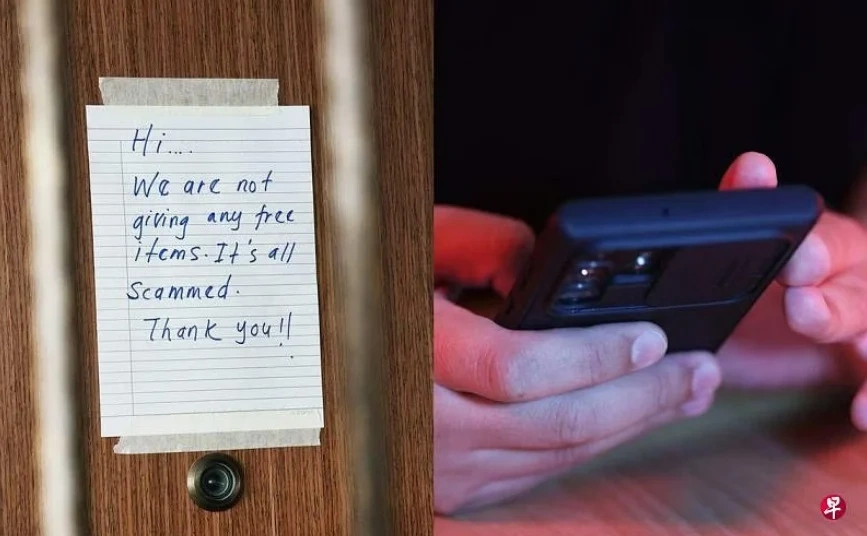 Hi....
We are not
giving any free
items. It's all
Scammed.
Thank you!!
早